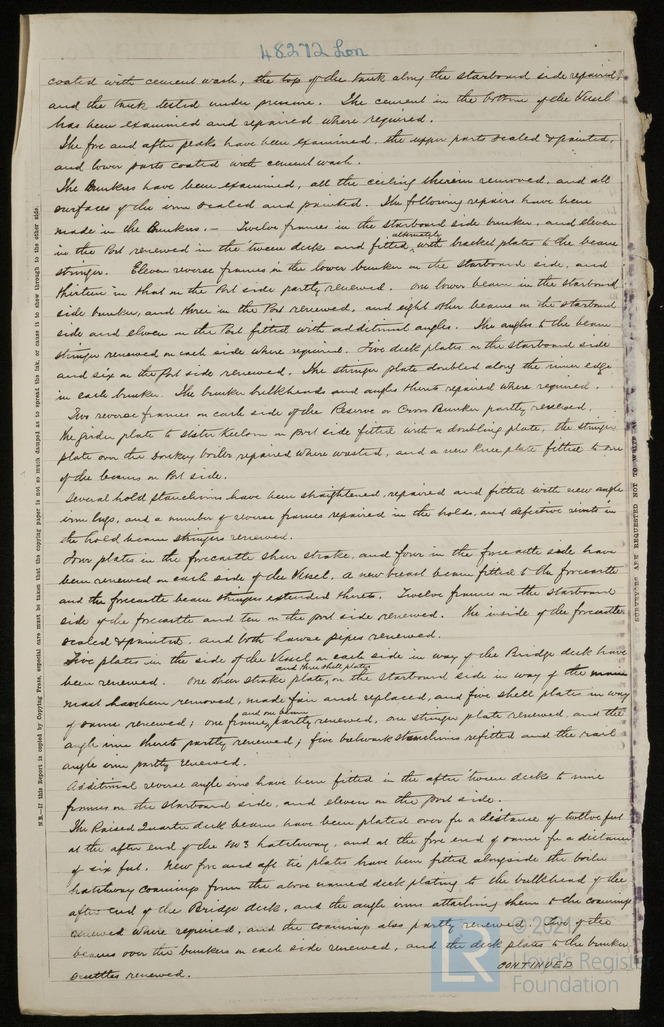 48272 Lon
coated with cement wash, the top of the tank along the starboard side repaired,
and the tank tested under pressure. The cement in the bottom of the Vessel
has been examined and repaired where required.
The fore and after peaks have been examined, the upper parts scaled & painted,
and lower parts coated with cement wash.
The Bunkers have been examined, all the ceiling therein removed, and all
surfaces of the iron scaled and painted. The following repairs have been
made in the Bunkers. – Twelve frames in the starboard side bunker, and eleven
in the Port renewed in the 'tween decks and fitted alternately with bracket plates to the beam
stringer. Eleven reverse frames in the lower bunker on the starboard side, and
thirteen in that on the Port side partly renewed. One lower beam in the starboard
side bunker, and three in the Port renewed, and eight other beams on the starboard
side and eleven on the Port fitted with additional angles. The angles to the beam
stringer renewed on each side where required. Five deck plates on the starboard side
and six on the Port side renewed. The stringer plate doubled along the inner edge
in each bunker. The bunker bulkheads and angles thereto repaired where required.
Two reverse frames on each side of the Reserve or Cross Bunker partly renewed,
the girder plate to sister Keelson on port side fitted with a doubling plate, the stringer
plate over the Donkey boiler repaired where wasted, and a new Knee plate fitted to one
of the beams on Port side.
Several hold stanchions have been straightened, repaired and fitted with new angle
iron lugs, and a number of reverse frames repaired in the holds, and defective rivets in
the hold beam stringers renewed.
Four plates in the forecastle sheer strake, and four in the forecastle side have
been renewed on each side of the Vessel. A new breast beam fitted to the forecastle
and the forecastle beam stringers extended thereto. Twelve frames on the starboard
side of the forecastle and ten on the port side renewed. The inside of the forecastle
scaled & painted, and both hawse pipes renewed.
Five plates in the side of the Vessel on each side in way of the Bridge deck have
been renewed. One sheer strake plate, and three shell plates on the starboard side in way of the main
mast have been removed, made fair and replaced, and five shell plates in way
of same renewed; one frame, and one beam partly renewed, one stringer plate renewed, and the
angle iron thereto partly renewed; five bulwark stanchions refitted and the rail
angle iron partly renewed.
Additional reverse angle irons have been fitted in the after tween decks to nine
frames on the starboard side, and eleven on the port side.
The Raised Quarter deck beams have been plated over for a distance of twelve feet
at the after end of the No 3 hatchway, and at the fore end of same for a distance
of six feet. New fore and aft tie plates have been fitted alongside the boiler
hatchway coamings from the above named deck plating to the bulkhead of the
after end of the Bridge deck, and the angle irons attaching them to the coamings
renewed where required, and the coamings also partly renewed. Two of the
beams over the bunkers on each side renewed, and the deck plates to the bunker
scuttles renewed.
CONTINUED
N.B.—If this Report is copied by Copying Press, especial care must be taken that the copying paper is not so much damped as to spread the ink, or cause it to show through to the other side.
SURVEYORS ARE REQUESTED NOT TO WRITE
© 2021
Lloyd's Register
Foundation
LR